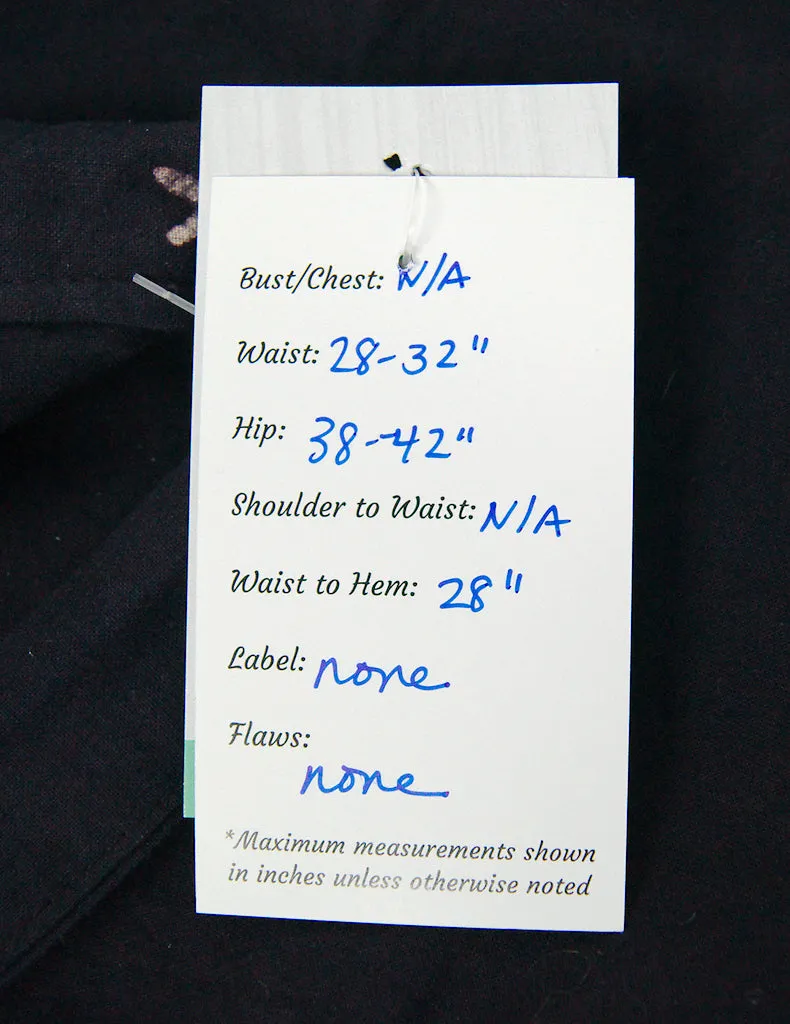 Bust/Chest: N/A
Waist: 28-32"
Hip: 38-42"
Shoulder to Waist: N/A
Waist to Hem: 28"
Label: none
Flaws:
none
*Maximum measurements shown
in inches unless otherwise noted